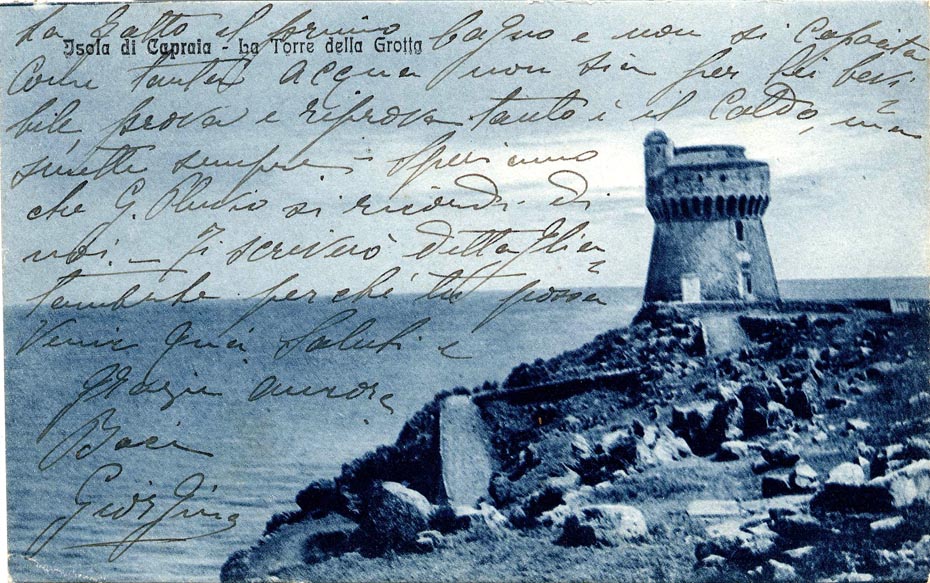 ha fatto il primo bagno e non si capacita
Isola di Capraia - La Torre della Grotta
come tanta acqua non sia per lei bevi-
bile, prova e riprova tanto è il caldo, ma
smette sempre - Speriamo
che G. si ricordi di
noi. - Ti scriverò dettaglia-
tamente perchè tu possa
venir quà Saluti e
grazie ancora
Baci
Giorgina